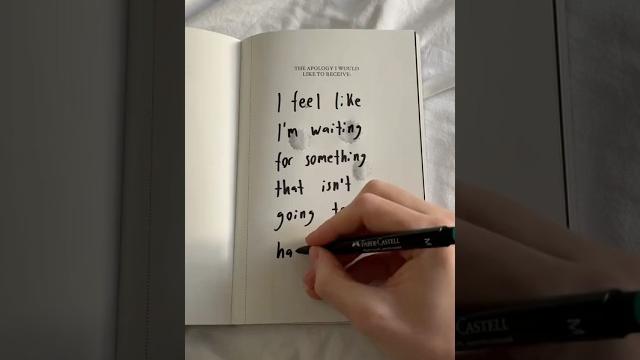 THE APOLOGY I WOULD
LIKE TO RECEIVE:
I feel like
I'm waiting
for something
that isn't
going to
ha
FABER-CASTELL
M
CASTELL
M